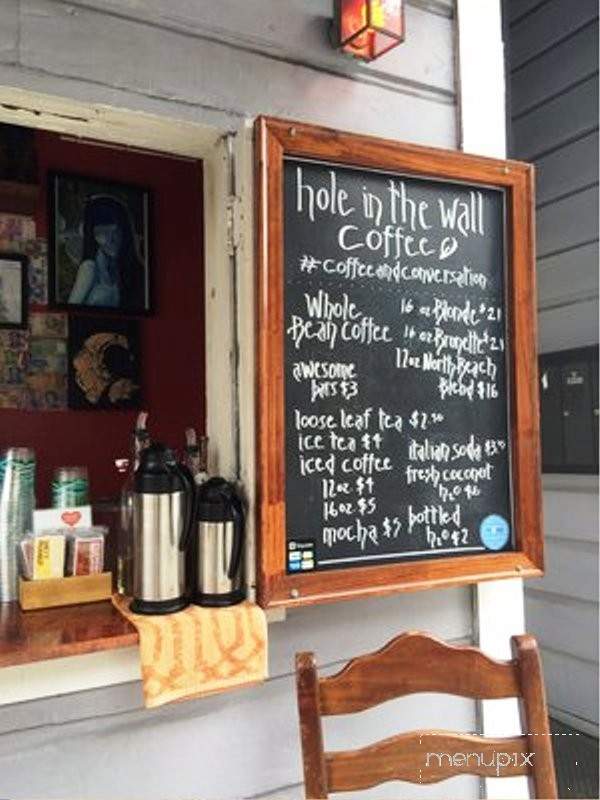 hole in the wall
coffee
#coffeeandconversation
Whole
Bean coffee
16 oz Blonde $21
16 oz Brunette $21
12oz North Beach
Blend $16
awesome
bars $3
loose leaf tea $2.50
ice tea $4
iced coffee
12oz $4
16oz $5
mocha $5
italian soda $3.75
fresh coconut
h2o $6
bottled
h2o $2
menupix